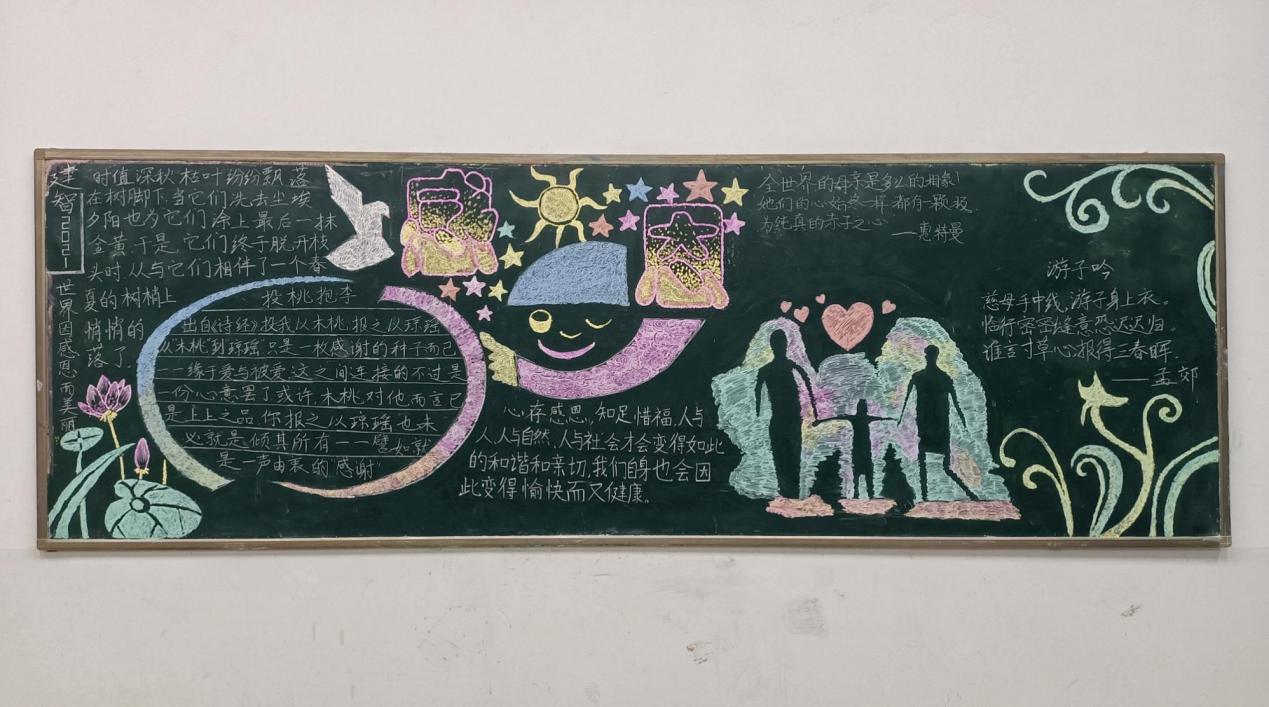 建智
世界因感恩而美丽
时值深秋,桂叶纷纷飘落
在树脚下,当它们洗去尘埃
夕阳也为它们涂上最后一抹
金黄,于是,它们终于脱开枝
头时,从与它们相伴了一个春
夏的树梢上
悄悄的
落了
投桃抱李
出自《诗经》投我以木桃,报之以琼瑶
从“木桃”到琼瑶,只是一枚感谢的种子而已
——缘于爱与被爱,这之间连接的不过是
一份心意罢了或许,木桃对他而言已
是上上之品,你报之以琼瑶也未
必就是倾其所有——譬如就
是一声由衷的“感谢”
感
恩
心存感恩,知足惜福,人与
人,人与自然,人与社会才会变得如此
的和谐和亲切,我们自身也会因
此变得愉快而又健康。
全世界的母亲是多么的相象!
他们的心始终一样,都有一颗极
为纯真的赤子之心
——惠特曼
游子吟
慈母手中线,游子身上衣。
临行密密缝,意恐迟迟归。
谁言寸草心,报得三春晖。
——孟郊